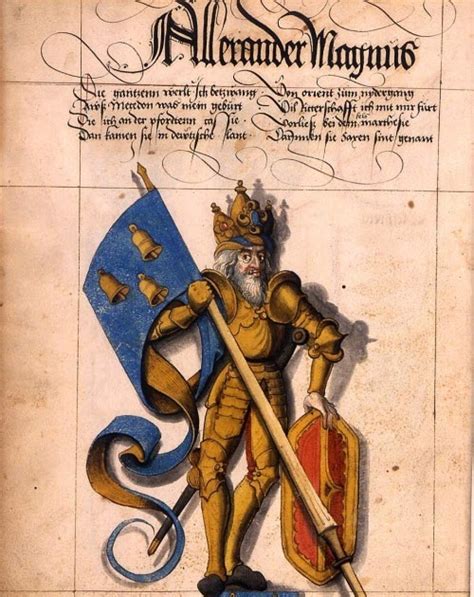 Allexander Magnus
Die gantzenn werlt Ich betzwang · Von orient zum nydergang
Auß Macedon was mein geburt · Vil Ritterschafft ich mit mir fürt
Die ich an der pfortenn ca sie · Vorließ bei dem marchesie
Dan kamen sie in dewtische lant · sie Saxen sint genant